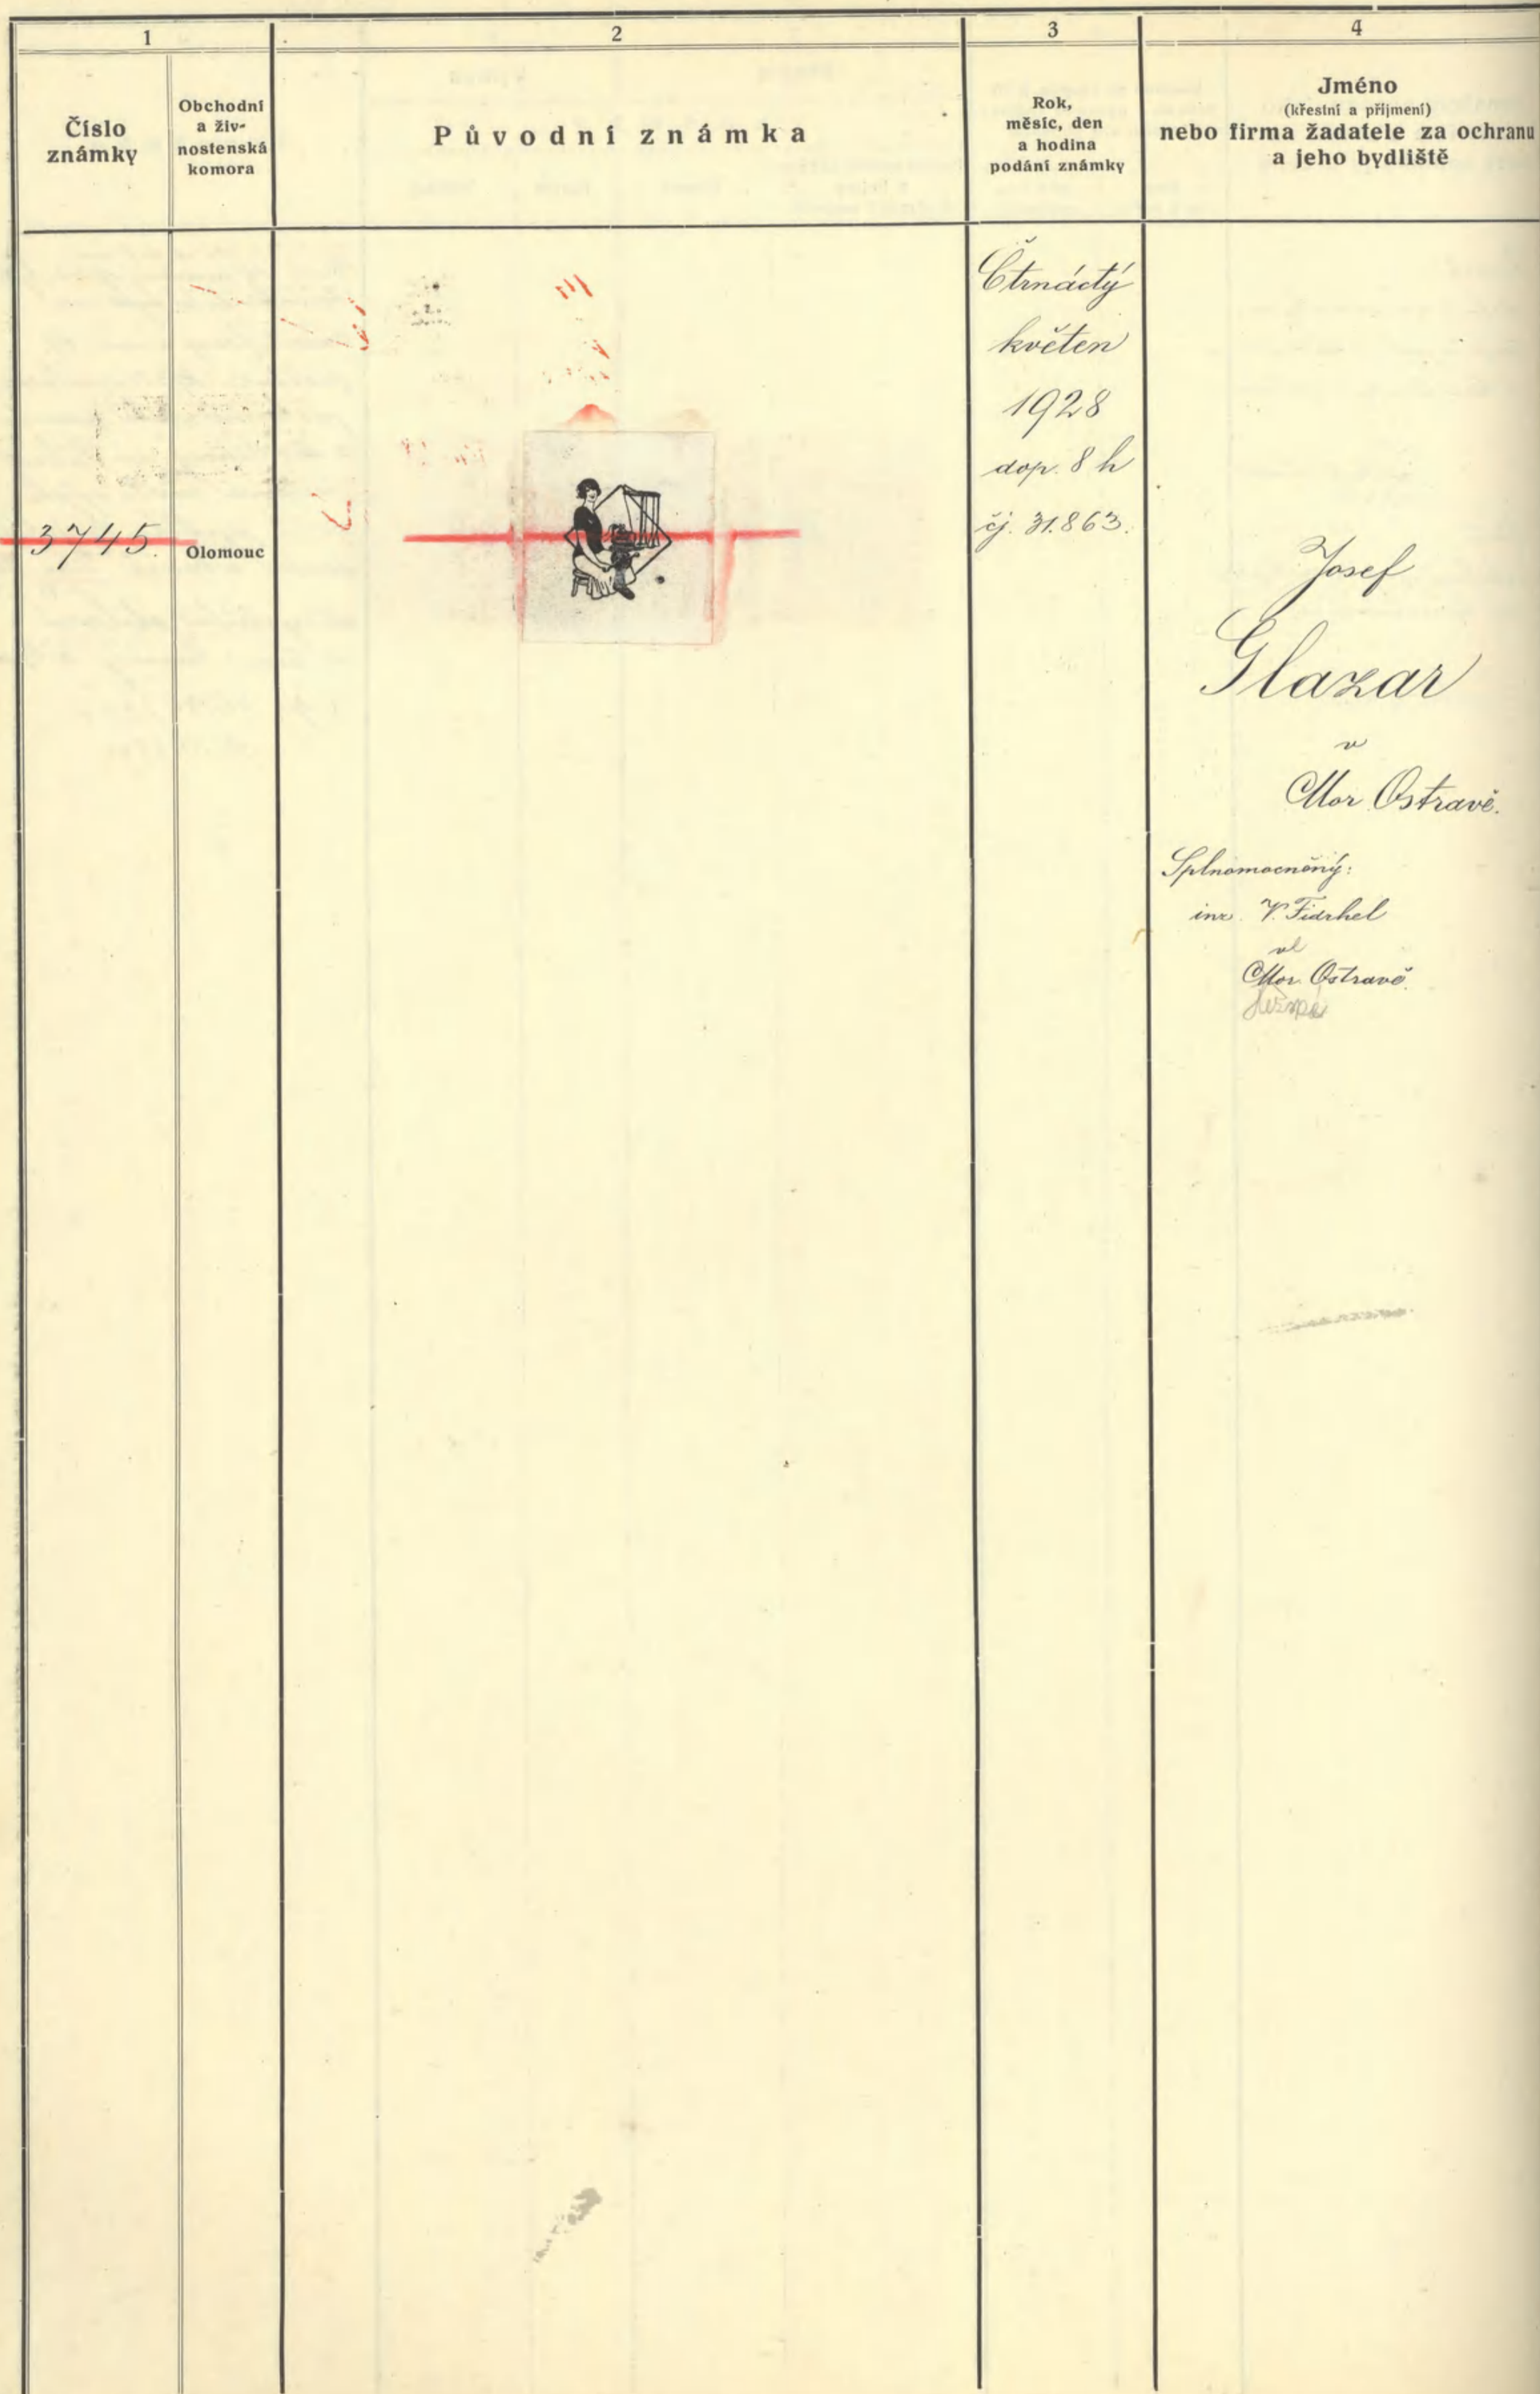 1
2
3
4
Číslo
známky
Obchodní
a živ-
nostenská
komora
Původní známka
Rok,
měsíc, den
a hodina
podání známky
Jméno
(křestní a příjmení)
nebo firma žadatele za ochranu
a jeho bydliště
3745.
Olomouc
Čtrnáctý
květen
1928
dop. 8 h
čj. 31.863.
Josef
Glazar
v
Mor. Ostravě.
Splnomocněný:
V.
Mor. Ostravě.